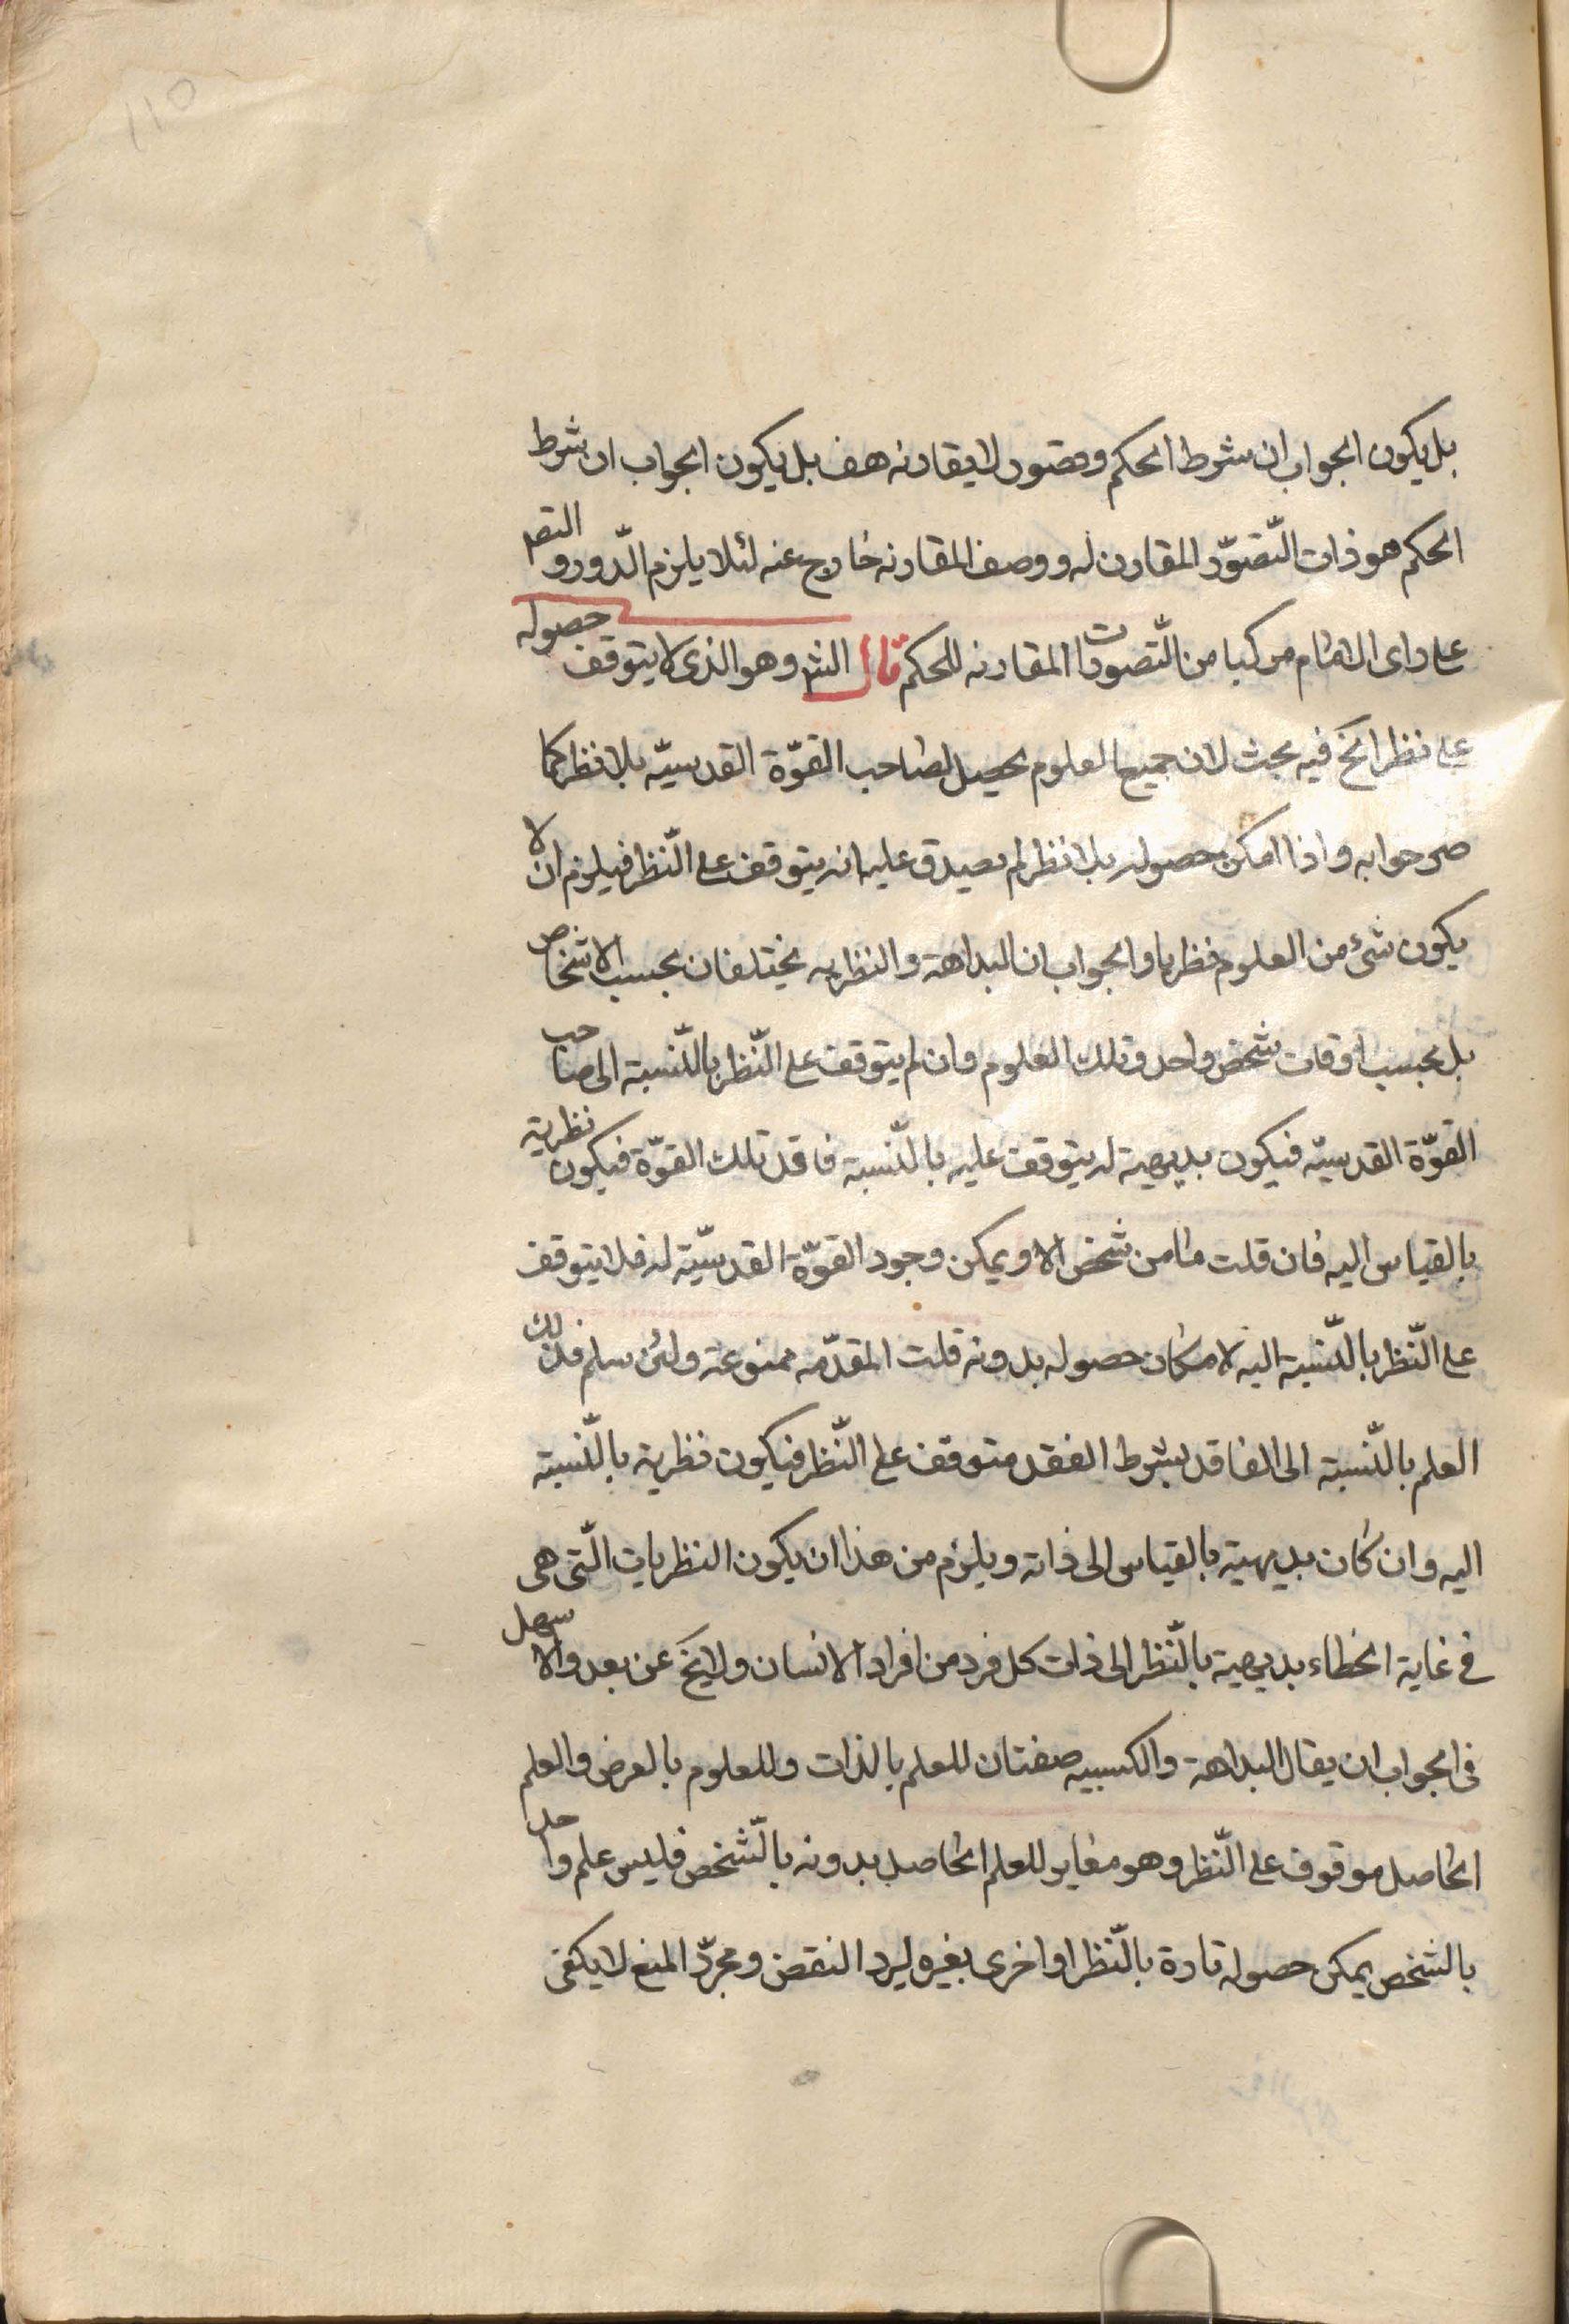 ١١٥
بل يكون الجواب ان شرط الحكم وتصور لا يقارنه هف بل يكون الجواب ان شرط
الحكم هو ذات التّصوّر المقارن له ووصف المقارنه خارج عنه لئلا يلزم الدّور والتصم
على راى الامام مركبا من التّصورات المقارنه للحكم قال الشم وهو الذى لا يتوقف حصوله
على نظر الخ فيه بحث لان جميع العلوم يحصل لصاحب القوّة القدسيّه بلا نظر كما
صرحوا به واذا امكن حصوله بلا نظر لم يصدق عليه انه يتوقف على النّظر فيلزم ان لا
يكون شىء من العلوم نظريا والجواب ان البداهة والنظريه يختلفان بحسب الاشخاص
بل بحسب اوقات شخص واحد وتلك العلوم وان لم يتوقف على النّظر بالنّسبة الى صاحب
القوّة القدسيّه فيكون بديهية له يتوقف عليه بالنّسبة فاقد تلك القوّة فيكون نظرية
بالقياس اليه فان قلت ما من شخص الا ويمكن وجود القوّة القدسيّة له فلا يتوقف
على النّظر بالنّسبة اليه لامكان حصوله بدونه قلت المقدّمه ممنوعة ولئن سلم فذلك
العلم بالنّسبة الى الفاقد بشرط الفقد متوقف على النّظر فيكون نظرية بالنّسبة
اليه وان كان بديهية بالقياس الى ذاته ويلزم من هذا ان يكون النظريات الّتى هى
فى غاية الخطاء بديهية بالنّظر الى ذات كل فرد من افراد الانسان ولا يخ عن بعد والاسهل
فى الجواب ان يقال البداهة والكسبيه صفتان للعلم بالذات وللعلوم بالعرض والعلم
الحاصل موقوف على النّظر وهو مغاير للعلم الحاصل بدونه بالّشخص فليس علم واحد
بالشخص يمكن حصوله تارة بالنّظر او اخرى بغيره ليرد النقض ومجرّد المنع لا يكفى